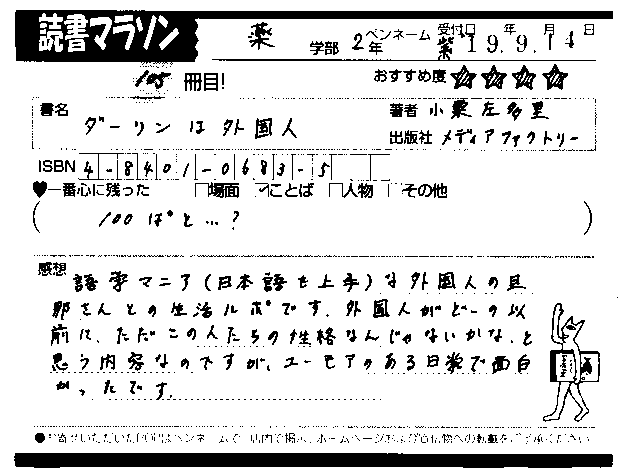 読書マラソン 薬 学部 2年 ペンネーム 紫 受付日 19年9月14日
105 冊目! おすすめ度 ★★★★
書名 ダーリンは外国人 著者 小栗左多里
出版社 メディアファクトリー
ISBN 4-8401-0683-5
♥一番心に残った □場面 ☑ことば □人物 □その他
( 100ぱ°と…? )
感想 語学マニア(日本語も上手)な外国人の旦
那さんとの生活ルポです。外国人がどーの以
前に、ただこの人たちの性格なんじゃないかな、と
思う内容なのですが、ユーモアのある日常で面白
かったです。
●お寄せいただいたPOPはペンネームで、店内で掲示、ホームページおよび宣伝物への転載をご了承ください